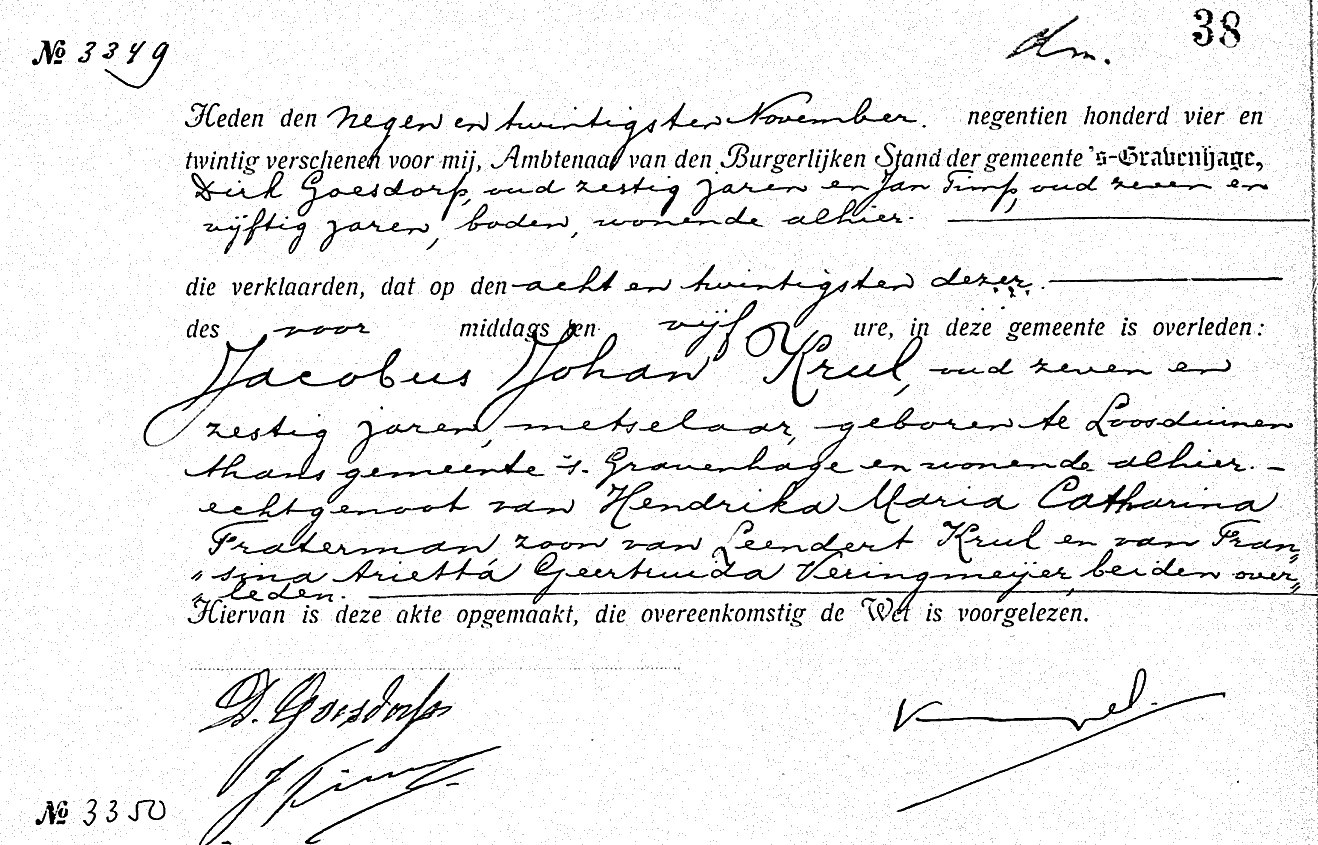 38
dm.
№ 3349
Heden den negen en twintigsten November. negentien honderd vier en
twintig verschenen voor mij, Ambtenaar van den Burgerlijken Stand der gemeente 's-Gravenhage,
Dirk Goesdorp, oud zestig jaren en Jan Timp, oud zeven en
vijftig jaren, boden, wonende alhier.
die verklaarden, dat op den acht en twintigsten dezer.
des voor middags ten vijf ure, in deze gemeente is overleden:
Jacobus Johan Krul, oud zeven en
zestig jaren, metselaar, geboren te Loosduinen
thans gemeente 's. Gravenhage en wonende alhier. -
echtgenoot van Hendrika Maria Catharina
Fraterman, zoon van Leendert Krul en van Fran„
„sina Arietta Geertruida Veringmeijer, beiden over„
„leden.
Hiervan is deze akte opgemaakt, die overeenkomstig de Wet is voorgelezen.
D. Goesdorp
J Timp
№ 3350